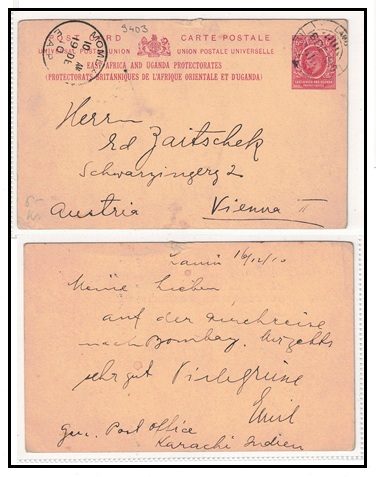 9403
POST CARD CARTE POSTALE
UNIVERSAL POSTAL UNION UNION POSTALE UNIVERSELLE
EAST AFRICA AND UGANDA PROTECTORATES
(PROTECTORATS BRITANNIQUES DE L'AFRIQUE ORIENTALE ET D'UGANDA)
Herrn
Ed Zaitschek
Schwarzingerg 2
Austria Vienna II
Lamu 16/12/10
Meine Lieben
auf der Durchreise
nach Bombay. Mir gehts
sehr gut Viele Grüsse
Emil
Gen. Post Office
Karachi Indien